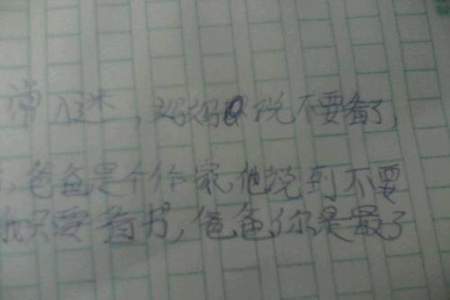 入迷，妈妈说不要看了，
爸爸是个作家,他说到不要
只要看书,爸爸,你是最了